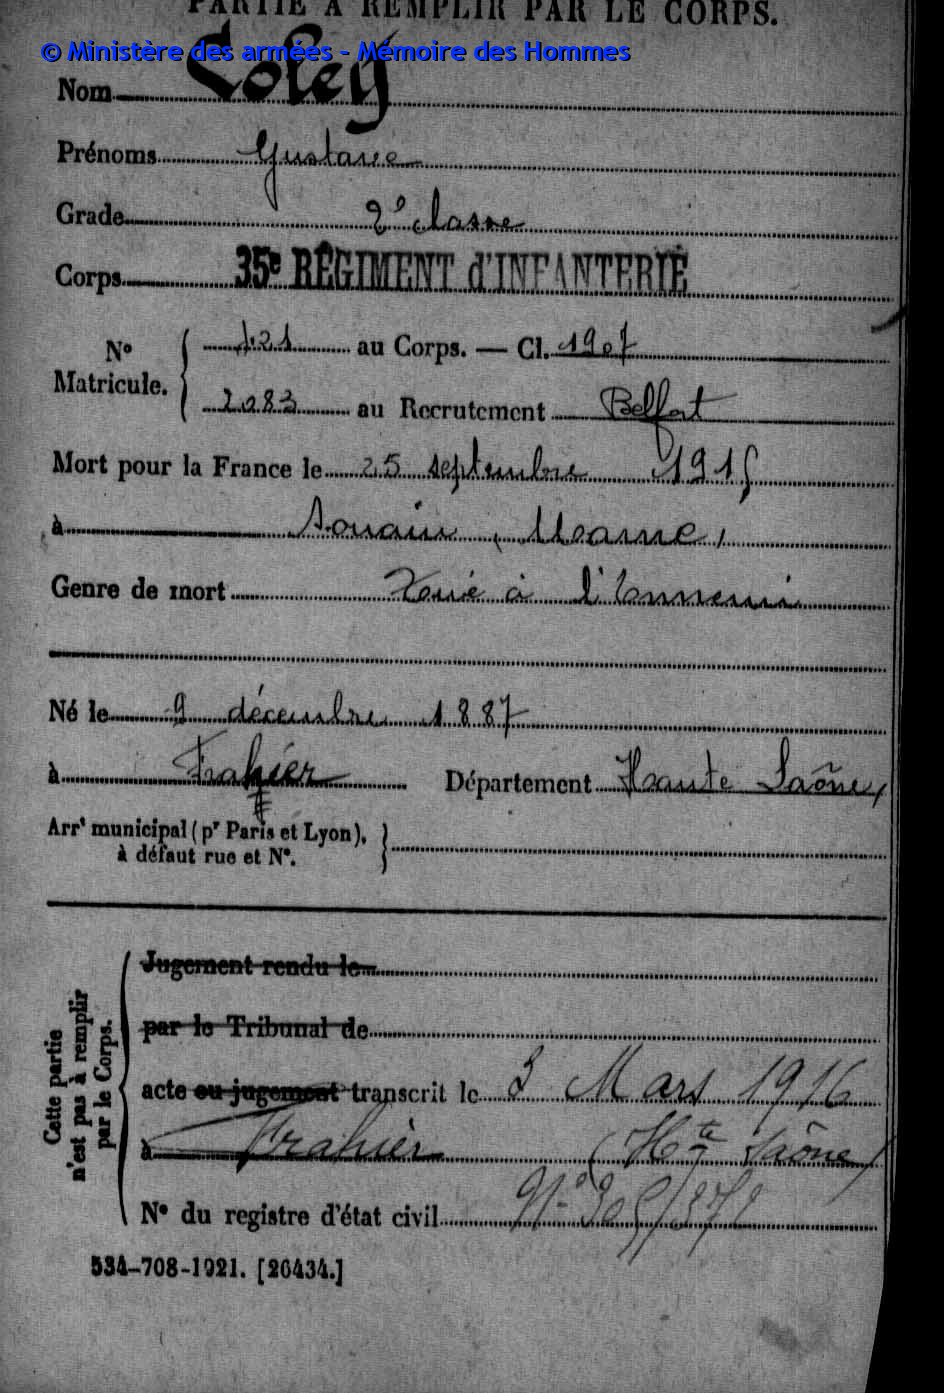 PARTIE A REMPLIR PAR LE CORPS.
© Ministère des armées - Mémoire des Hommes
Nom Coley
Prénoms Gustave
Grade 2e classe
Corps 35e RÉGIMENT d'INFANTERIE
No Matricule. { 421 au Corps. — Cl. 1907
2083 au Recrutement Belfort
Mort pour la France le 25 septembre 1915
à Souain, Marne,
Genre de mort Tué à l'Ennemi
Né le 9 décembre 1887
à Frahier Département Haute Saône,
Arrt municipal (pr Paris et Lyon),
à défaut rue et No.
Cette partie
n'est pas à remplir
par le Corps.
Jugement rendu le
par le Tribunal de
acte ou jugement transcrit le 3 Mars 1916
à Frahier (Hte Saône)
No du registre d'état civil
534-708-1921. [26434.]